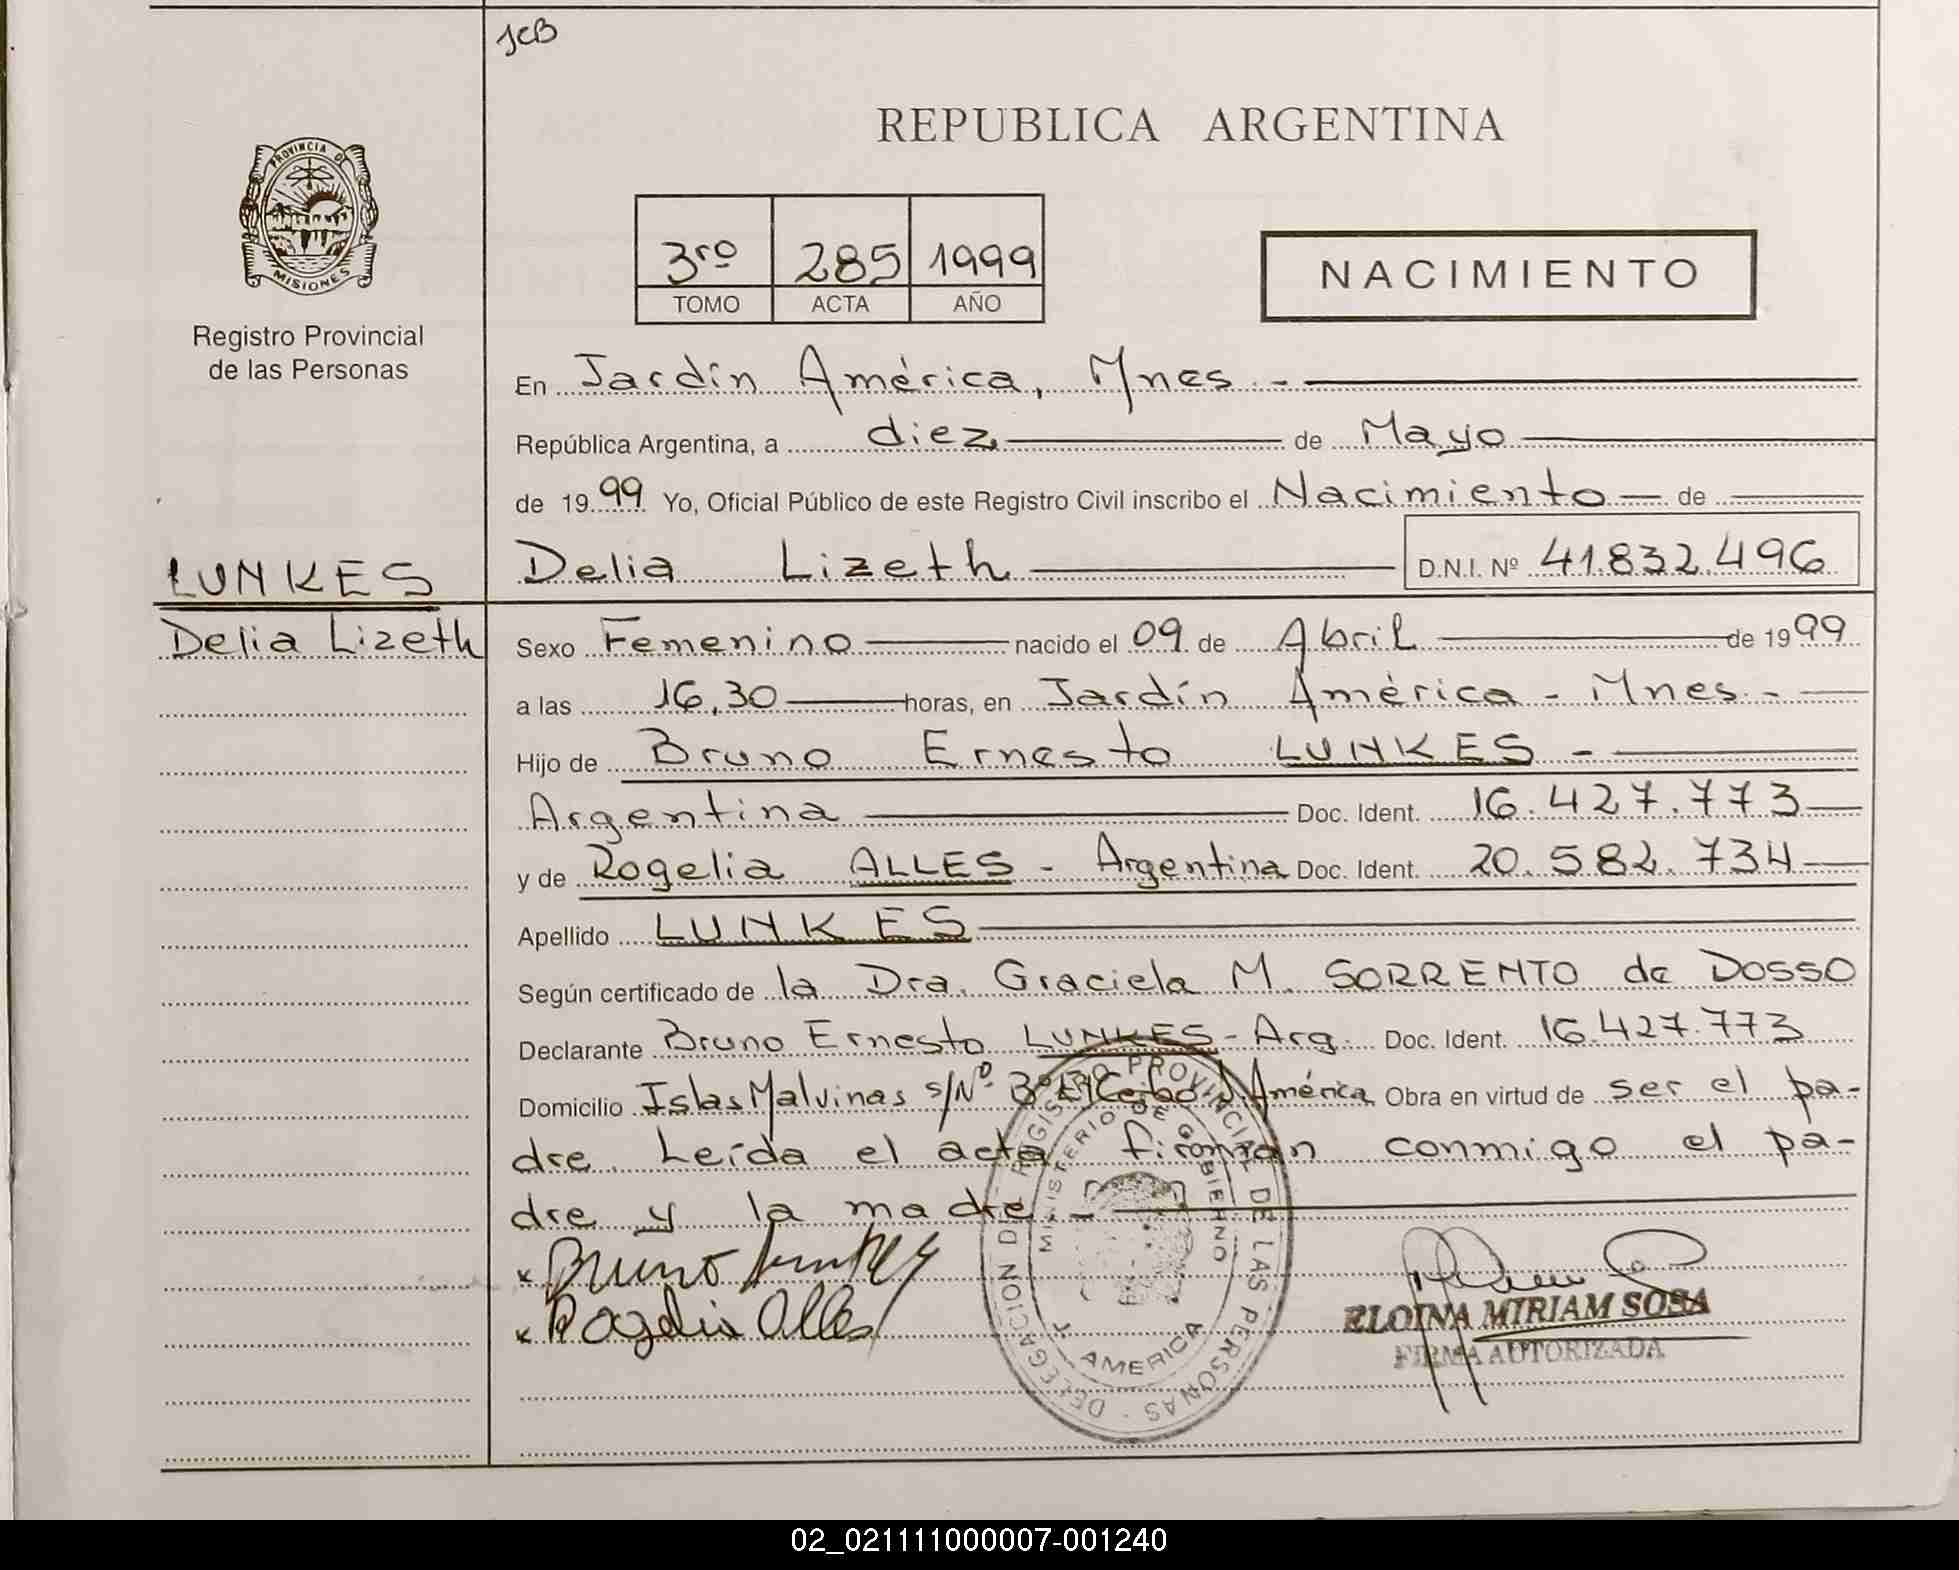 JCB
REPUBLICA ARGENTINA
PROVINCIA DE
MISIONES
Registro Provincial
de las Personas
3ro 285 1999
TOMO ACTA AÑO
NACIMIENTO
En Jardín América, Mnes. -
República Argentina, a diez de Mayo
de 1999 Yo, Oficial Público de este Registro Civil inscribo el Nacimiento de
LUNKES
Delia Lizeth
Delia Lizeth D.N.I. Nº 41.832.496
Sexo Femenino nacido el 09 de Abril de 1999
a las 16,30 horas, en Jardín América - Mnes. -
Hijo de Bruno Ernesto LUNKES -
Argentina Doc. Ident. 16.427.773
y de Rogelia ALLES - Argentina Doc. Ident. 20.582.734
Apellido LUNKES
Según certificado de la Dra. Graciela M. SORRENTO de DOSSO
Declarante Bruno Ernesto LUNKES - Arg. Doc. Ident. 16.427.773
Domicilio Islas Malvinas s/Nº Bº El Ceibo J. América Obra en virtud de ser el pa-
dre. Leída el acta firman conmigo el pa-
dre y la madre. -
x Bruno Lunkes
x Rogelia Alles
REGISTRO PROVINCIAL DE LAS PERSONAS - DELEGACION D
MINISTERIO DE GOBIERNO
AMERICA
ELOINA MIRIAM SOSA
FIRMA AUTORIZADA
02_021111000007-001240